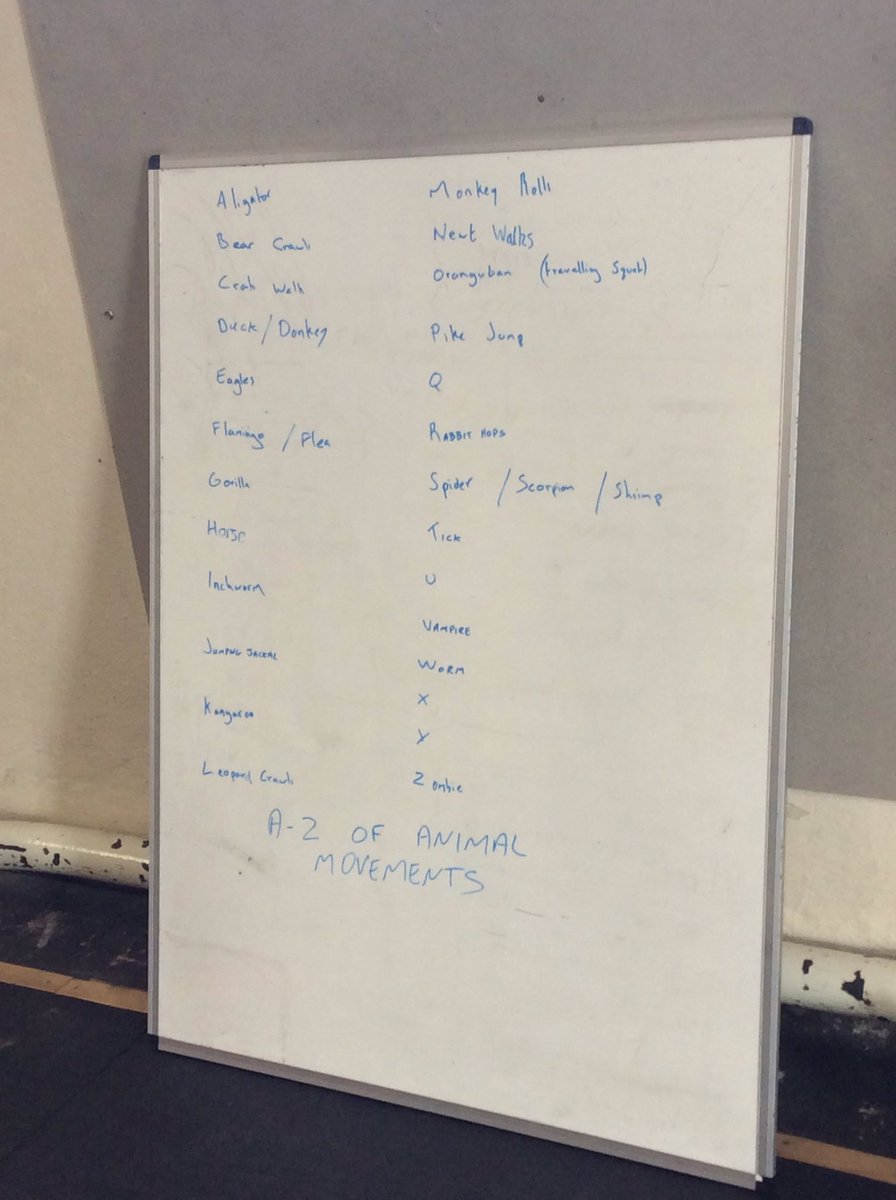 Aligator
Bear Crawl
Crab Walk
Duck / Donkey
Eagles
Flamingo / Flea
Gorilla
Horse
Inchworm
JUMPING JACKAL
Kangaroo
Leopard Crawl
Monkey Rolls
Newt Walks
Oranguban (travelling Squat)
Pike Jump
Q
RABBIT HOPS
Spider / Scorpion / Shrimp
Tick
U
VAMPIRE
WORM
X
Y
Zombie
A-Z OF ANIMAL
MOVEMENTS